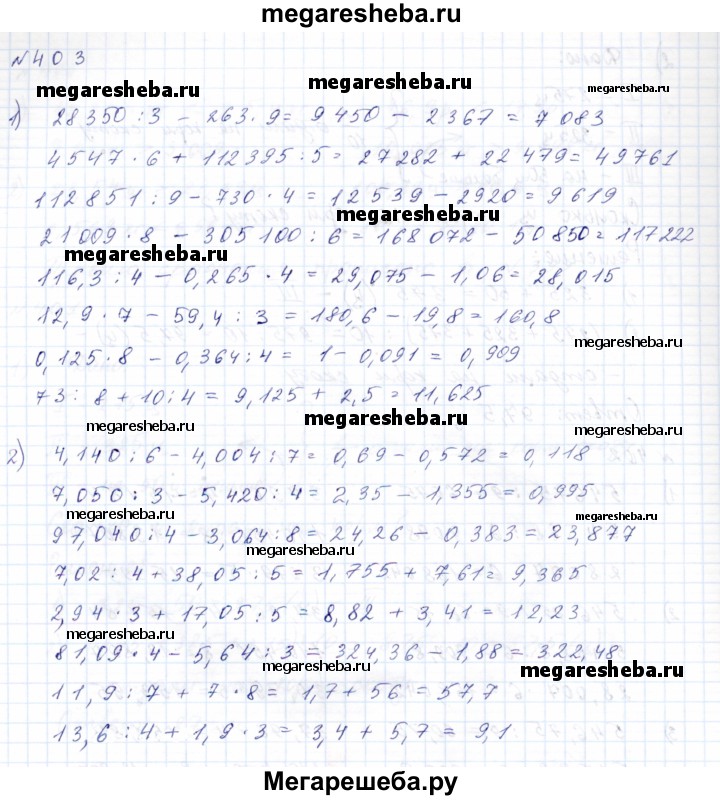 megaresheba.ru
№ 403
megaresheba.ru megaresheba.ru megaresheba.ru
1) 28350 : 3 - 263 · 9 = 9450 - 2367 = 7083
4547 · 6 + 112395 : 5 = 27282 + 22479 = 49761
112851 : 9 - 730 · 4 = 12539 - 2920 = 9619
megaresheba.ru
21009 · 8 - 305100 : 6 = 168072 - 50850 = 117222
megaresheba.ru
116,3 : 4 - 0,265 · 4 = 29,075 - 1,06 = 28,015
12,9 · 7 - 59,4 : 3 = 180,6 - 19,8 = 160,8
megaresheba.ru
0,125 · 8 - 0,364 : 4 = 1 - 0,091 = 0,909
73 : 8 + 10 : 4 = 9,125 + 2,5 = 11,625
megaresheba.ru
megaresheba.ru
2) 4,140 : 6 - 4,004 : 7 = 0,69 - 0,572 = 0,118
7,050 : 3 - 5,420 : 4 = 2,35 - 1,355 = 0,995
megaresheba.ru megaresheba.ru
97,040 : 4 - 3,064 : 8 = 24,26 - 0,383 = 23,877
megaresheba.ru
7,02 : 4 + 38,05 : 5 = 1,755 + 7,61 = 9,365
2,94 · 3 + 17,05 : 5 = 8,82 + 3,41 = 12,23
megaresheba.ru
81,09 · 4 - 5,64 : 3 = 324,36 - 1,88 = 322,48
megaresheba.ru megaresheba.ru
11,9 : 7 + 7 · 8 = 1,7 + 56 = 57,7
13,6 : 4 + 1,9 · 3 = 3,4 + 5,7 = 9,1
Мегарешеба.ру